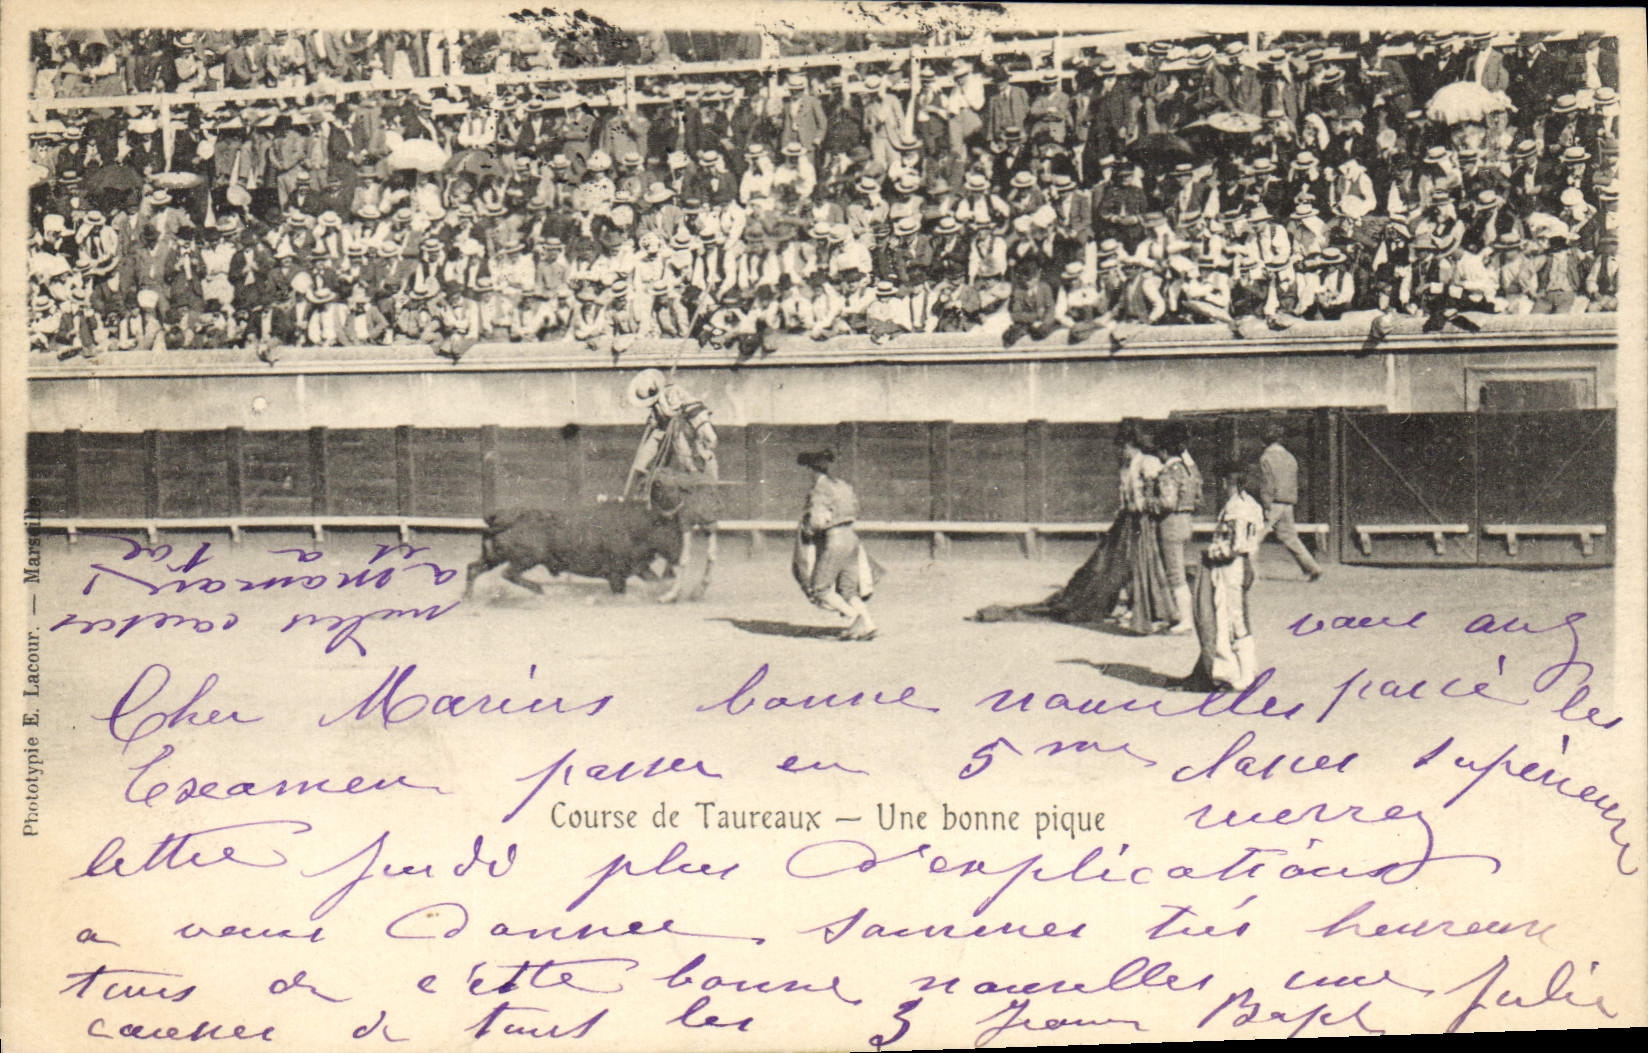 Cher Marius bonne nouvelles passé les
vous aug
Examen passer en 5me classes supérieur
Course de Taureaux — Une bonne pique
lettre jeudi plus d'explications
a vous donner sommes très heureux
tous de cette bonne nouvelles une Julie
caresses de tous les 3 Jean Bapt
milles caresses
a maman
et a toi
Phototypie E. Lacour. — Marseille